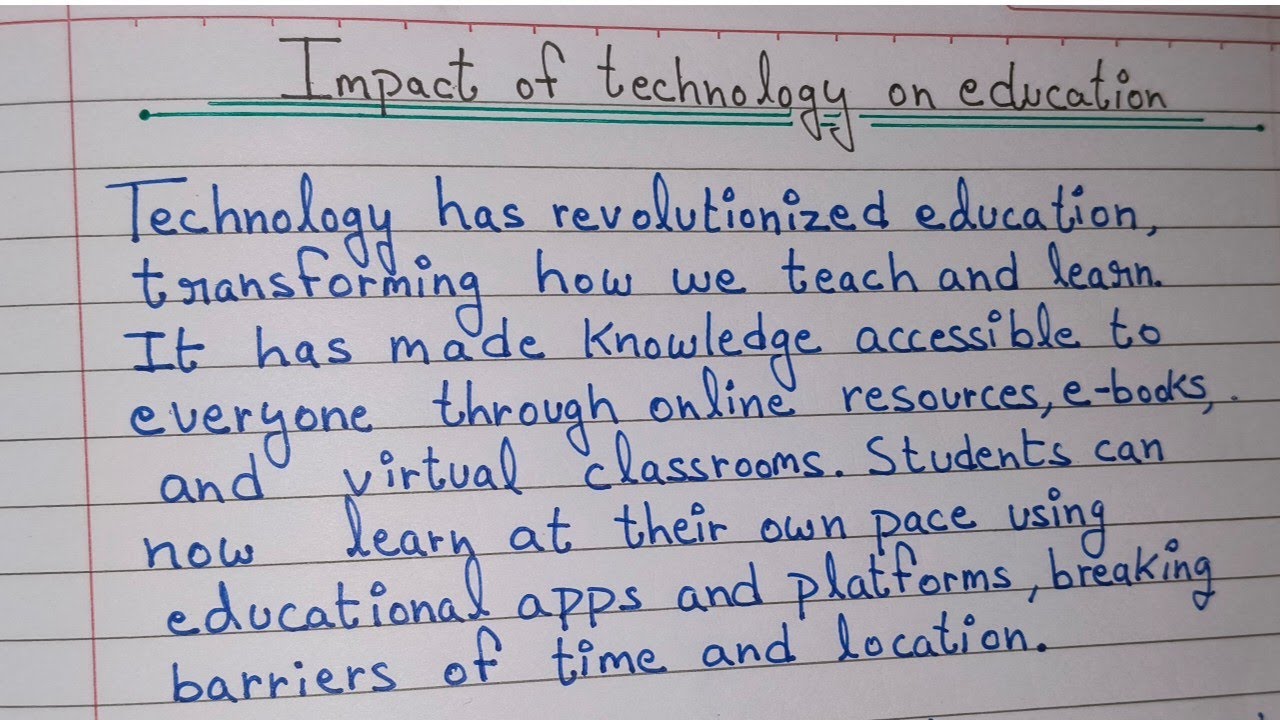 Impact of technology on education
Technology has revolutionized education,
transforming how we teach and learn.
It has made knowledge accessible to
everyone through online resources, e-books,
and virtual classrooms. Students can
now learn at their own pace using
educational apps and platforms, breaking
barriers of time and location.